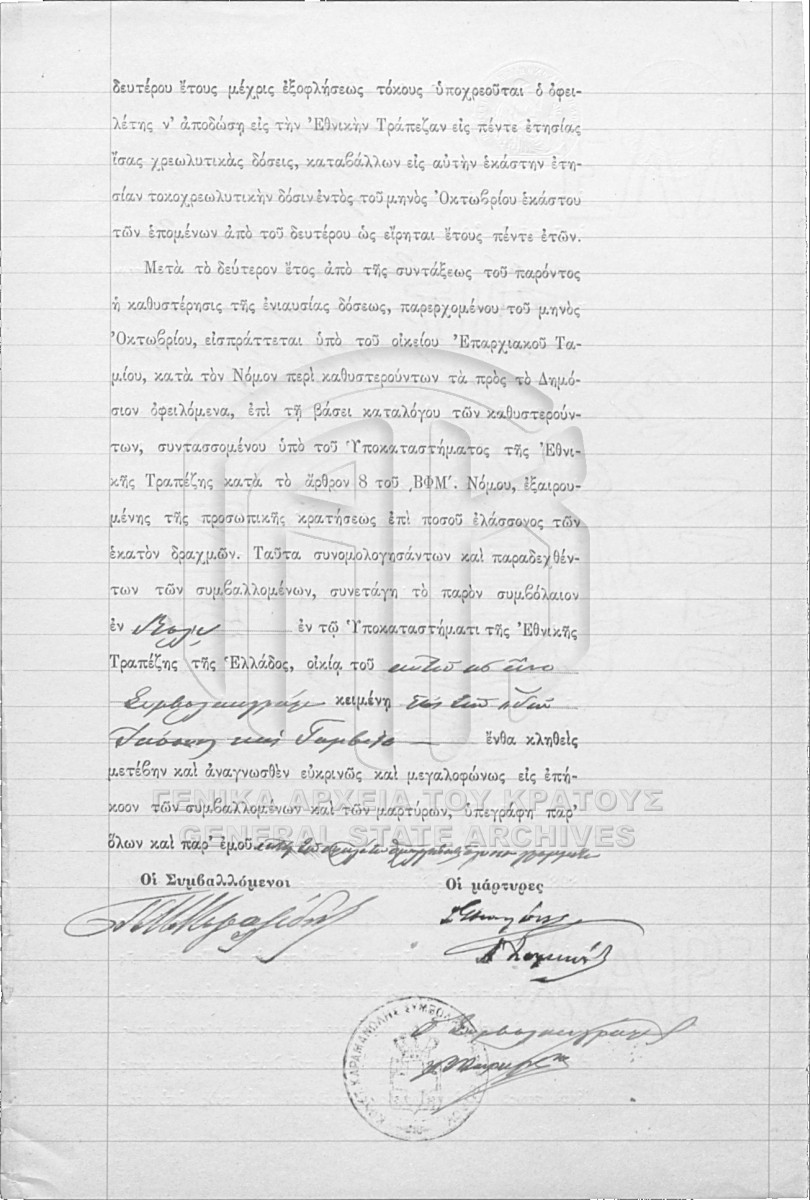 δευτέρου ἔτους μέχρις ἐξοφλήσεως τόκους ὑποχρεοῦται ὁ ὀφει-
λέτης ν' ἀποδώσῃ εἰς τὴν Ἐθνικὴν Τράπεζαν εἰς πέντε ἐτησίας
ἴσας χρεωλυτικὰς δόσεις, καταβάλλων εἰς αὐτὴν ἑκάστην ἐτη-
σίαν τοκοχρεωλυτικὴν δόσιν ἐντὸς τοῦ μηνὸς Ὀκτωβρίου ἑκάστου
τῶν ἑπομένων ἀπὸ τοῦ δευτέρου ὡς εἴρηται ἔτους πέντε ἐτῶν.
Μετὰ τὸ δεύτερον ἔτος ἀπὸ τῆς συντάξεως τοῦ παρόντος
ἡ καθυστέρησις τῆς ἐνιαυσίας δόσεως, παρερχομένου τοῦ μηνὸς
Ὀκτωβρίου, εἰσπράττεται ὑπὸ τοῦ οἰκείου Ἐπαρχιακοῦ Τα-
μίου, κατὰ τὸν Νόμον περὶ καθυστερούντων τὰ πρὸς τὸ Δημό-
σιον ὀφειλόμενα, ἐπὶ τῇ βάσει καταλόγου τῶν καθυστερούν-
των, συντασσομένου ὑπὸ τοῦ Ὑποκαταστήματος τῆς Ἐθνι-
κῆς Τραπέζης κατὰ τὸ ἄρθρον 8 τοῦ ͵ΒΦΜʹ. Νόμου, ἐξαιρου-
μένης τῆς προσωπικῆς κρατήσεως ἐπὶ ποσοῦ ἐλάσσονος τῶν
ἑκατὸν δραχμῶν. Ταῦτα συνομολογησάντων καὶ παραδεχθέν-
των τῶν συμβαλλομένων, συνετάγη τὸ παρὸν συμβόλαιον
ἐν Βόλῳ ἐν τῷ Ὑποκαταστήματι τῆς Ἐθνικῆς
Τραπέζης τῆς Ἑλλάδος, οἰκίᾳ τοῦ
κειμένῃ
καὶ ἔνθα κληθεὶς
μετέβην καὶ ἀναγνωσθὲν εὐκρινῶς καὶ μεγαλοφώνως εἰς ἐπή-
κοον τῶν συμβαλλομένων καὶ τῶν μαρτύρων, ὑπεγράφη παρ'
ὅλων καὶ παρ' ἐμοῦ
Οἱ Συμβαλλόμενοι Οἱ μάρτυρες
Ὁ Συμβολαιογράφος
ΓΕΝΙΚΑ ΑΡΧΕΙΑ ΤΟΥ ΚΡΑΤΟΥΣ
GENERAL STATE ARCHIVES